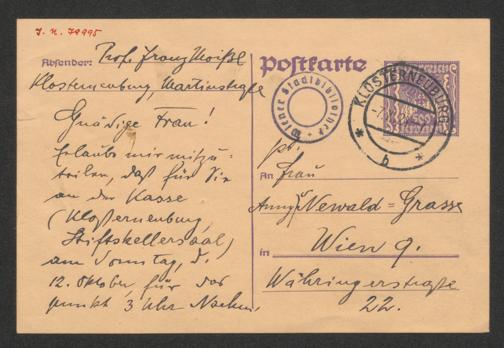 J. N. 79995
Absender: Prof. Franz Moißl
Klosterneuburg, Martinstraße
Gnädige Frau!
Erlaube mir mitzu-
teilen, daß für Sie
an der Kasse
(Klosterneuburg,
Stiftskellersaal)
am Sonntag, d.
12. Oktober, für das
punkt 3 Uhr Nachm.
Postkarte
Wiener Stadtbibliothek
KLOSTERNEUBURG
b
An Frau
Newald-Grasse
in Wien 9.
Währingerstraße
22.